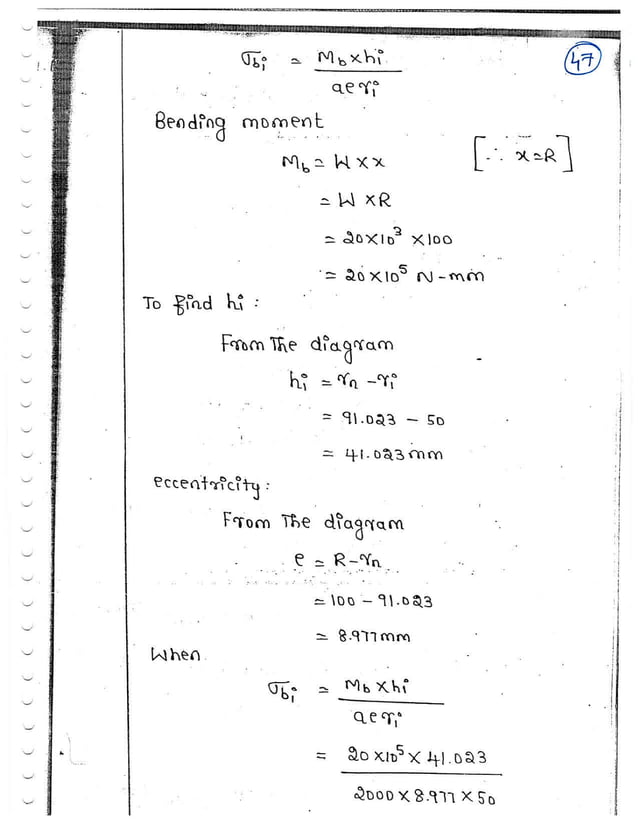 47
σbi = Mb×hi / aeri
Bending moment
Mb = W×x [∴ x=R]
= W×R
= 20×10³ ×100
= 20×10⁵ N-mm
To find hi :
From The diagram
hi = rn - ri
= 91.023 - 50
= 41.023mm
eccentricity:
From The diagram
e = R-rn
= 100 - 91.023
= 8.977mm
When
σbi = Mb×hi / aeri
= 20×10⁵×41.023 / 2000×8.977×50